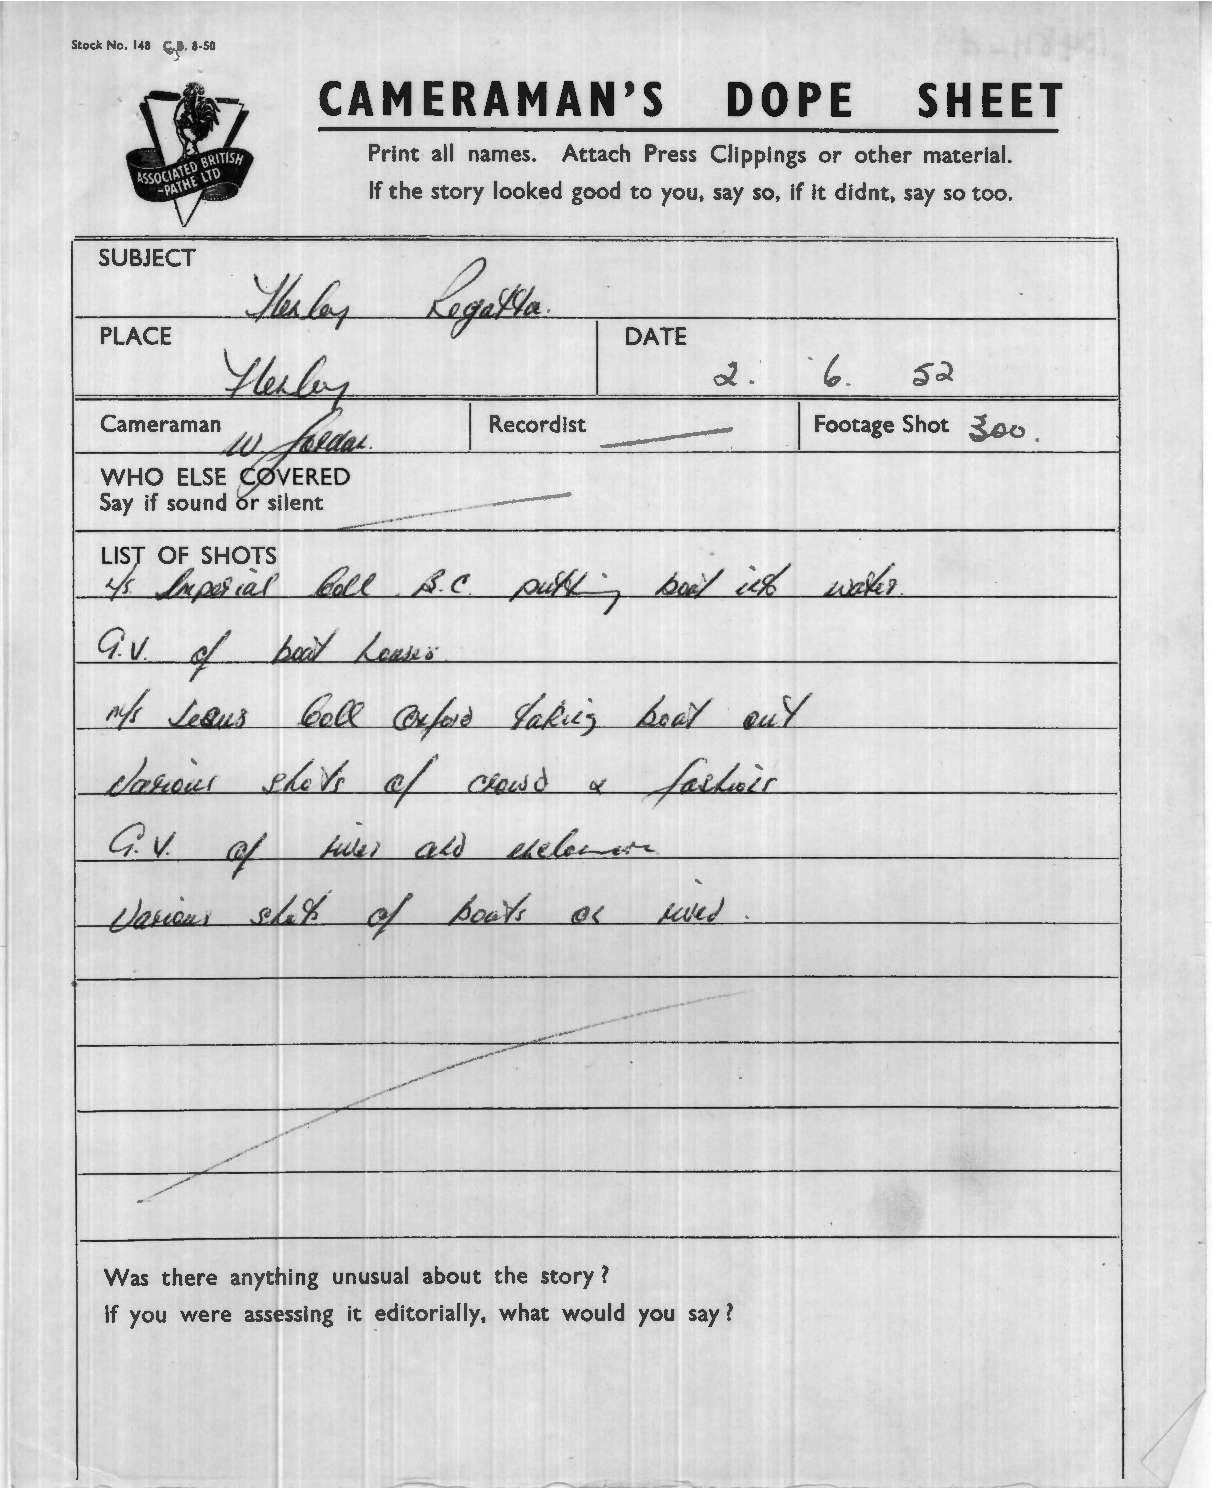 Stock No. 148 C.B. 8-50
ASSOCIATED BRITISH
-PATHE LTD
CAMERAMAN'S DOPE SHEET
Print all names. Attach Press Clippings or other material.
If the story looked good to you, say so, if it didnt, say so too.
SUBJECT
Henley Regatta.
PLACE
Henley
DATE
2. 6. 52
Cameraman W. Jordan.
Recordist
Footage Shot 300.
WHO ELSE COVERED
Say if sound or silent
LIST OF SHOTS
L/S. Imperial Coll. B.C. putting boat into water.
G.V. of boat houses.
M/S Jesus Coll Oxford taking boat out
Various shots of crowd & fashions
G.V. of river and enclosure
Various shots of boats on river.
Was there anything unusual about the story?
If you were assessing it editorially, what would you say?